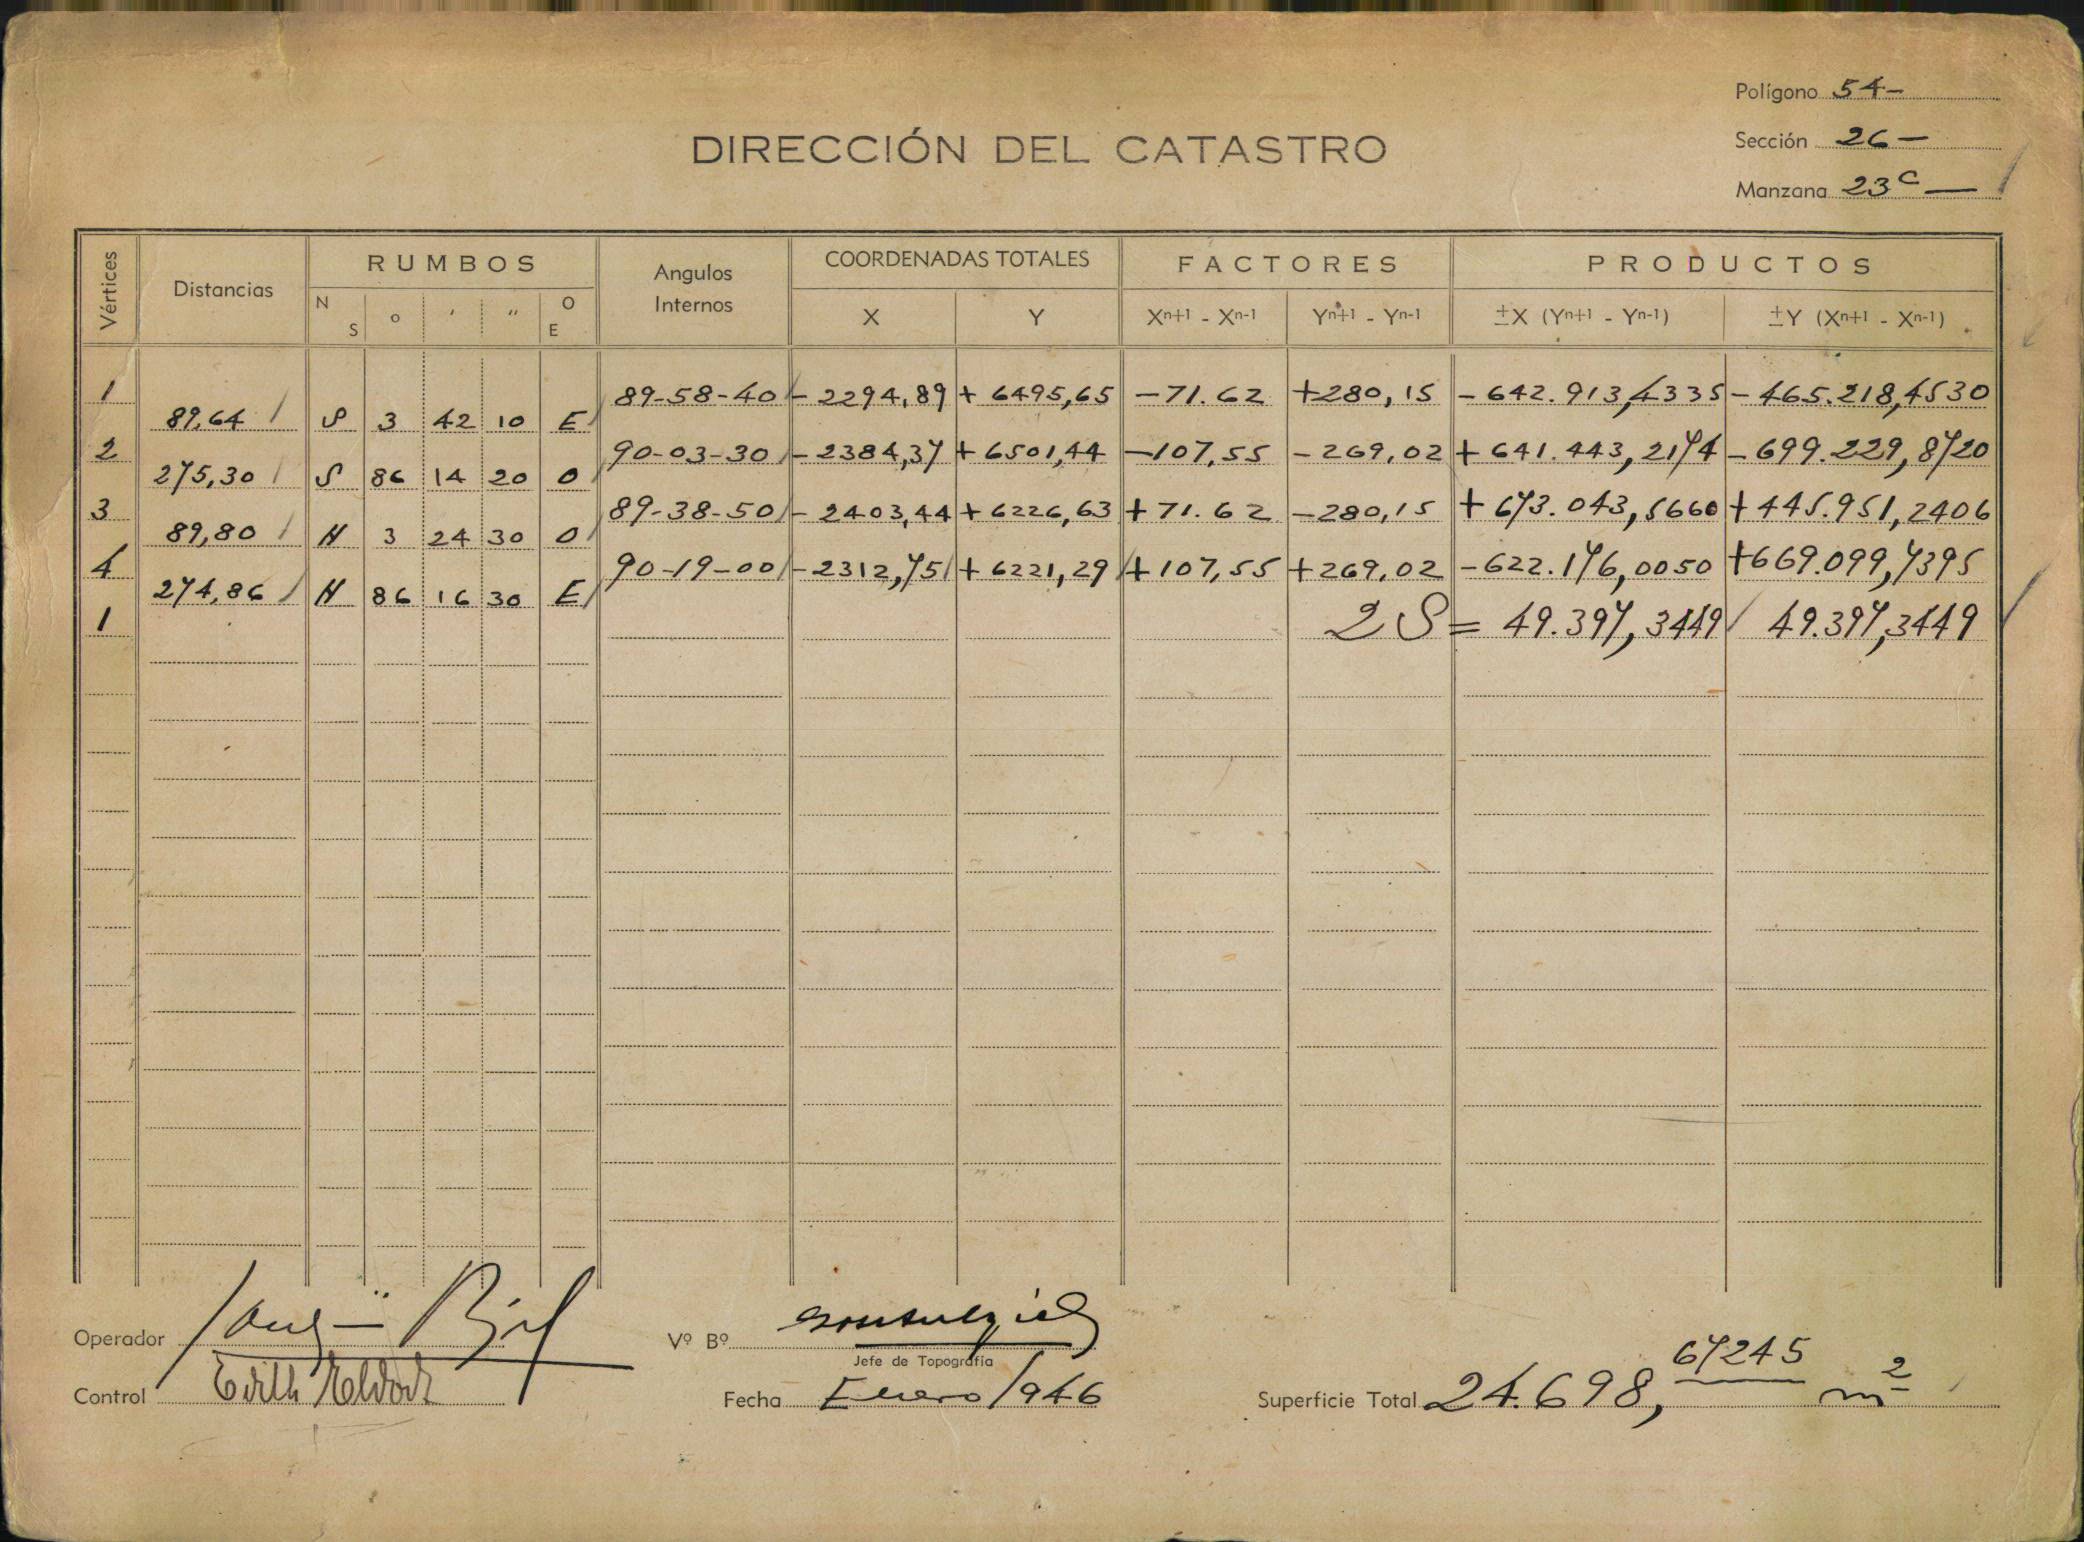 Polígono 54-
DIRECCIÓN DEL CATASTRO
Sección 26-
Manzana 23c-
Vértices Distancias RUMBOS Angulos Internos COORDENADAS TOTALES FACTORES PRODUCTOS
N S o ′ ″ O E X Y Xn+1 - Xn-1 Yn+1 - Yn-1 ±X (Yn+1 - Yn-1) ±Y (Xn+1 - Xn-1)
1 89-58-40 -2294,89 +6495,65 -71.62 +280,15 -642.913,4335 -465.218,4530
89,64 S 3 42 10 E
2 90-03-30 -2384,37 +6501,44 -107,55 -269,02 +641.443,2174 -699.229,8720
275,30 S 86 14 20 O
3 89-38-50 -2403,44 +6226,63 +71.62 -280,15 +673.043,5660 +445.951,2406
89,80 N 3 24 30 O
4 90-19-00 -2312,75 +6221,29 +107,55 +269,02 -622.176,0050 +669.099,7395
274,86 N 86 16 30 E
1 2S= 49.397,3449 49.397,3449
Operador
Vº Bº
Jefe de Topografía
Control Edith
Fecha Enero/946
Superficie Total 24.698,67245 m2